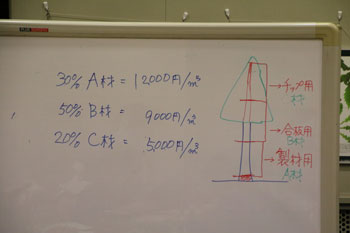 30% A材 = 12000円/m³
50% B材 = 9000円/m³
20% C材 = 5,000円/m³
→チップ用
材
→合板用
B材
→製材用
A材